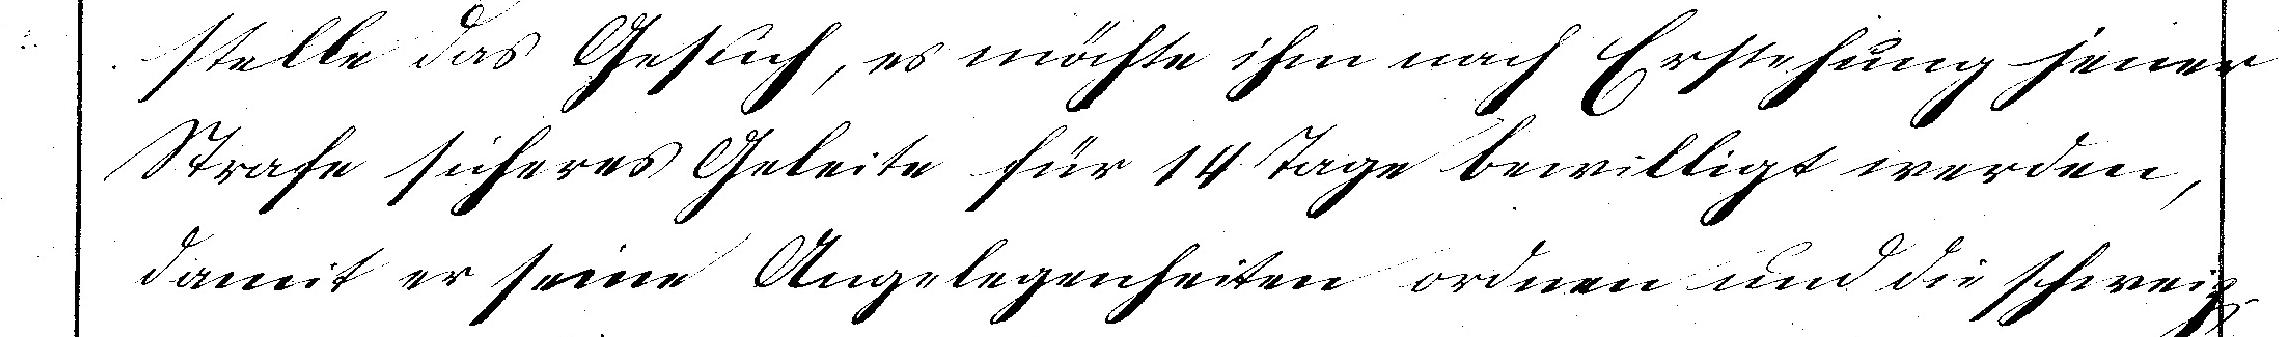 stelle das Gesuch, es möchte ihm nach Erstehung jener
Strafe sicheres Geleite für 14 Tage bewilligt werden,
damit er seine Angelegenheiten ordnen und die schweiz